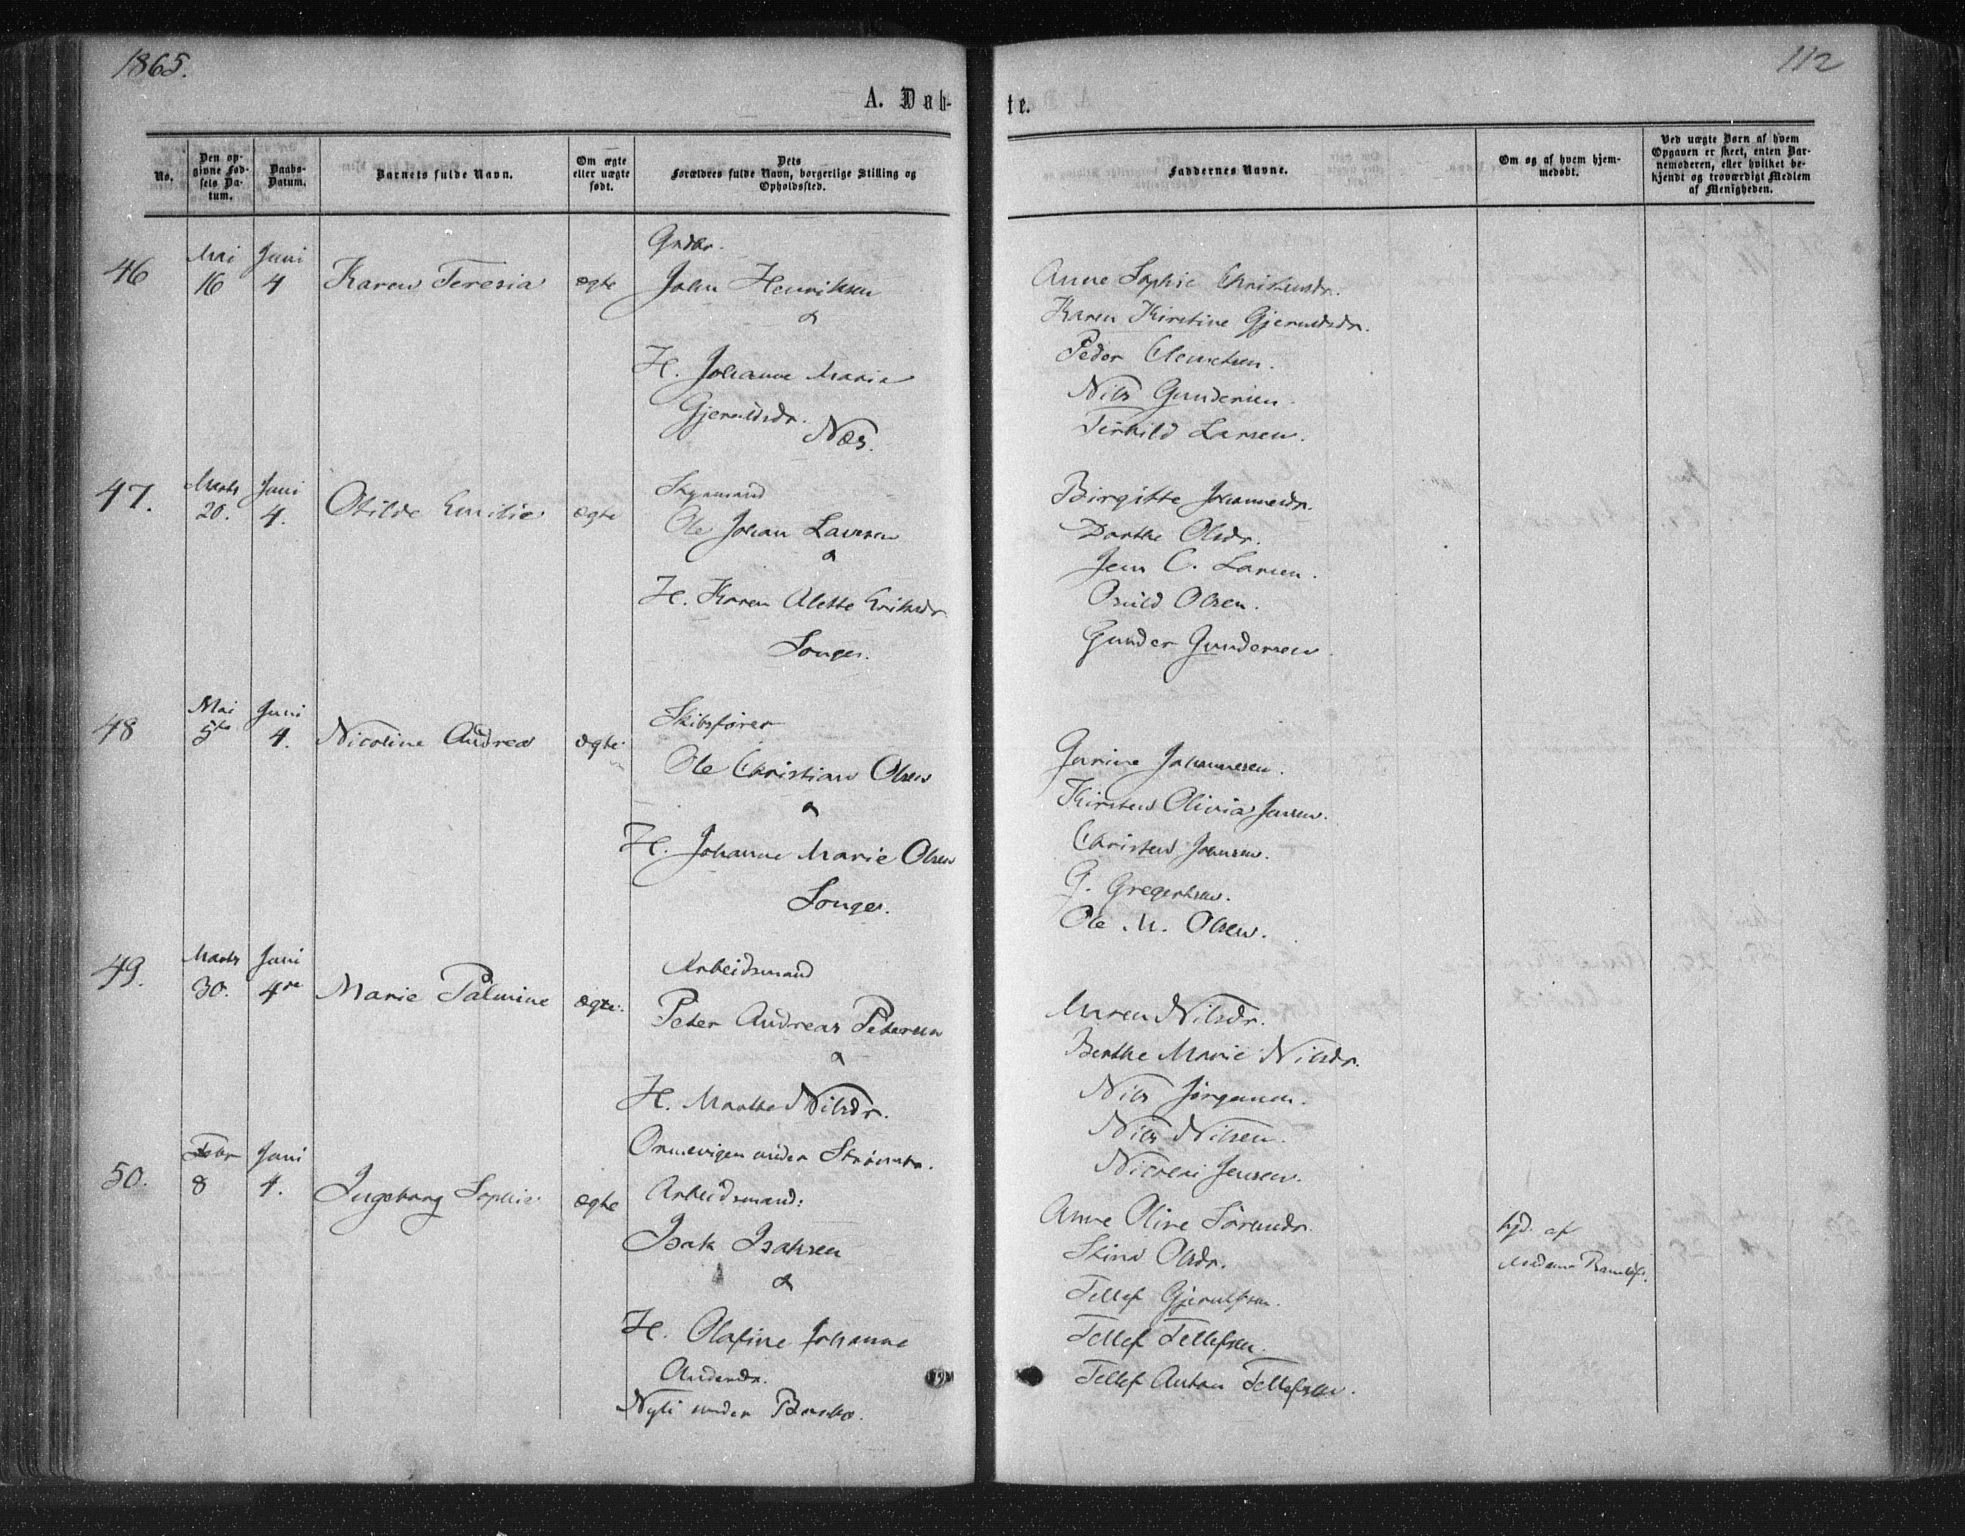 1865.
112
A. Døb-
te.
No.
Den op-
givne Fød-
sels Da-
tum.
Daabs-
Datum.
Barnets fulde Navn.
Om ægte
eller uægte
født.
Dets
Forældres fulde Navn, borgerlige Stilling og
Opholdssted.
Faddernes Navne.
Om og af hvem hjem-
medøbt.
Ved uægte Børn af hvem
Opgaven er skeet, enten Bar-
nemoderen, eller hvilket be-
kjendt og troværdigt Medlem
af Menigheden.
46
Mai
16
Juni
4
Karen Teresia
ægte
Grdbr.
John Henriksen
&
H. Johanne Marie
Gjeruldsdr.
Næs.
Anne Sophie Christensdr.
Karen Kirstine Gjeruldsdr.
Peder Clemetsen.
Nils Gundersen.
Terkild Larsen.
47.
Marts
20.
Juni
4.
Otilde Emilie
ægte
Ole Johan Laursen
&
H. Karen Alette Eriksdr
Songe.
Birgitte Johannesdr.
Dorthe Olsdr.
Jens C. Larsen.
Osuld Olsen.
Gunder Gundersen.
48
Mai
5te
Juni
4.
Nicoline Andrea
ægte
Skibsfører
Ole Christian Olsen
&
H. Johanne Marie Olsen
Songe.
Gurine Johannesen.
Kirsten Olivia Jensen.
Christen Johnsen.
G. Gregertsen.
Ole M. Olsen.
49.
Marts
30.
Juni
4de
Marie Palmine
ægte.
Arbeidsmand
Peter Andreas Petersen
&
H. Marthe Nilsdr.
Ormevigen under
Maren Nilsdr.
Berthe Marie Nilsdr.
Nils Jørgensen.
Nils Nilsen.
Jensen.
50.
Febr
8
Juni
4.
Ingeborg Sophie
ægte
Arbeidsmand:
Isak Isaksen
&
H. Olafine Johanne
Andersdr.
under
Anne Oline Sørensdr.
Stine Olsdr.
Tellef Gjerulfsen.
Tellef Tellefsen.
Tellef Anton Tellefsen.
hjd. af
Madame